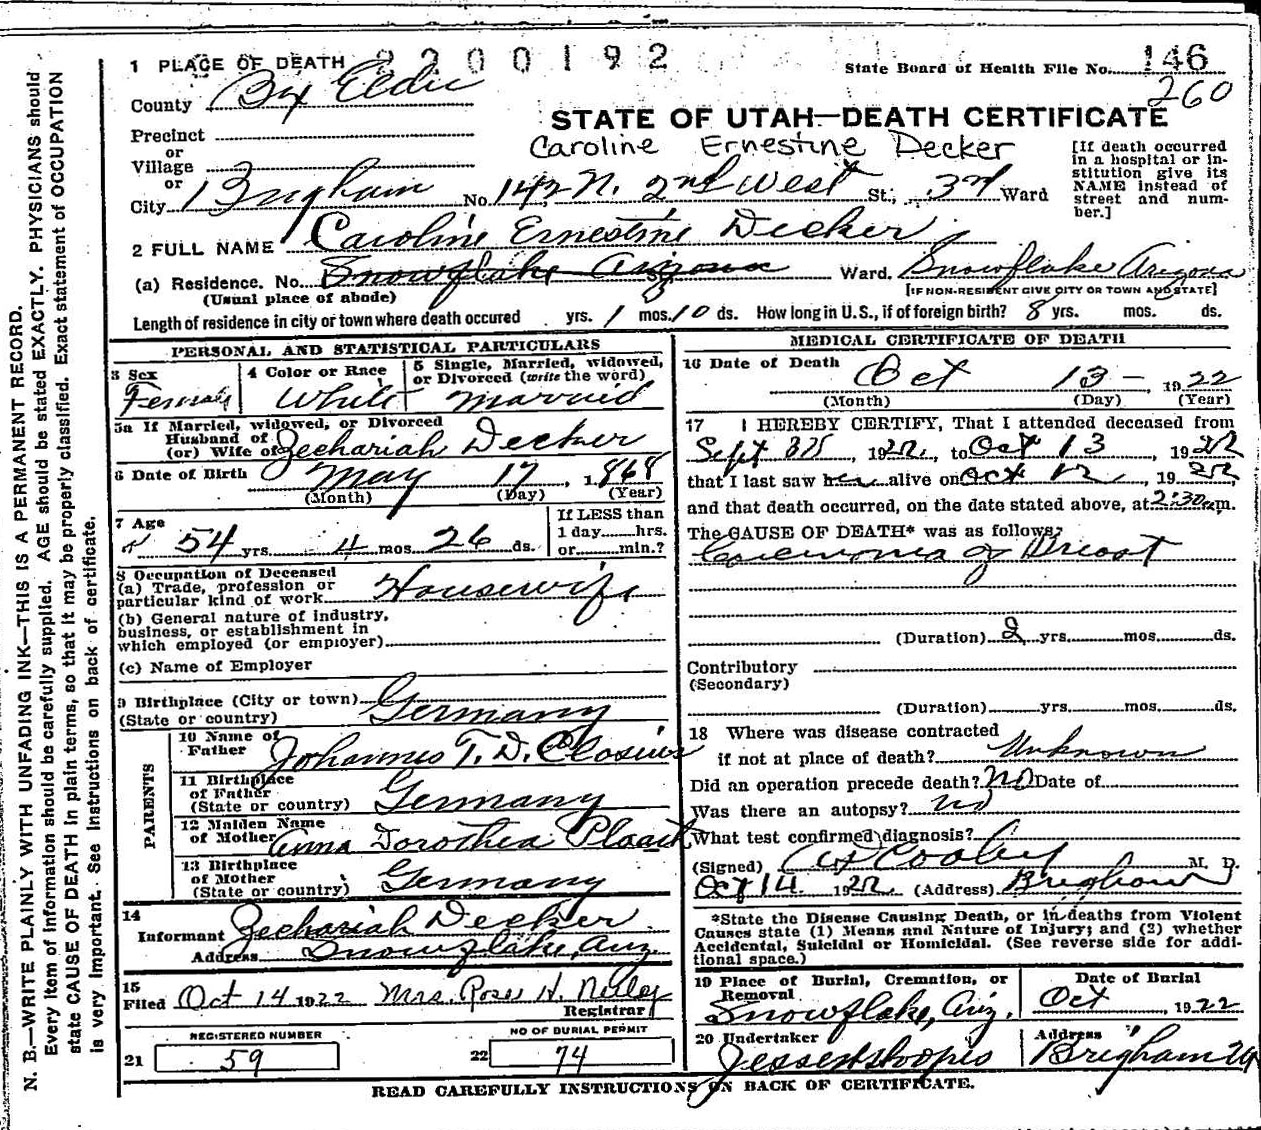 1 PLACE OF DEATH 2200192
State Board of Health File No. 146
260
County Box Elder
STATE OF UTAH—DEATH CERTIFICATE
Precinct
or
Village
or
Caroline Ernestine Decker
[If death occurred in a hospital or institution give its NAME instead of street and number.]
City Brigham No. 142 N. 2nd West St.; 3rd Ward
2 FULL NAME Caroline Ernestine Decker
(a) Residence. No. Snowflake Arizona St. Ward. Snowflake Arizona
(Usual place of abode) [IF NON-RESIDENT GIVE CITY OR TOWN AND STATE]
Length of residence in city or town where death occured yrs. 1 mos. 10 ds. How long in U.S., if of foreign birth? 8 yrs. mos. ds.
PERSONAL AND STATISTICAL PARTICULARS
3 Sex
Female
4 Color or Race
White
5 Single, Married, widowed,
or Divorced (write the word)
Married
5a If Married, widowed, or Divorced
Husband of
(or) Wife of Zechariah Decker
6 Date of Birth May 17, 1868
(Month) (Day) (Year)
7 Age
54 yrs. 4 mos. 26 ds.
If LESS than
1 day......hrs.
or......min.?
8 Occupation of Deceased
(a) Trade, profession or
particular kind of work Housewife
(b) General nature of industry,
business, or establishment in
which employed (or employer)
(c) Name of Employer
9 Birthplace (City or town) Germany
(State or country)
PARENTS
10 Name of
Father Johannus T. D. Closius
11 Birthplace
of Father Germany
(State or country)
12 Maiden Name
of Mother Anna Dorothea
13 Birthplace
of Mother Germany
(State or country)
14
Informant Zechariah Decker
Address Snowflake, Ariz
15
Filed Oct 14 1922 Mrs. Rose H.
Registrar
REGISTERED NUMBER
21 59
NO OF BURIAL PERMIT
22 74
MEDICAL CERTIFICATE OF DEATH
16 Date of Death
Oct 13 - 1922
(Month) (Day) (Year)
17 I HEREBY CERTIFY, That I attended deceased from
Sept, 1922, to Oct 13, 1922
that I last saw her alive on Oct 12, 1922
and that death occurred, on the date stated above, at 2:30 a.m.
The CAUSE OF DEATH* was as follows:
of Breast
(Duration) 2 yrs. mos. ds.
Contributory
(Secondary)
(Duration) yrs. mos. ds.
18 Where was disease contracted
if not at place of death? Unknown
Did an operation precede death? NO Date of
Was there an autopsy? no
What test confirmed diagnosis?
(Signed) Cooley M. D.
Oct 14 1922 (Address) Brigham
*State the Disease Causing Death, or in deaths from Violent
Causes state (1) Means and Nature of Injury; and (2) whether
Accidental, Suicidal or Homicidal. (See reverse side for addi-
tional space.)
19 Place of Burial, Cremation, or
Removal
Snowflake, Ariz.
Date of Burial
Oct, 1922
20 Undertaker
Address
Brigham
READ CAREFULLY INSTRUCTIONS ON BACK OF CERTIFICATE.
N. B.—WRITE PLAINLY WITH UNFADING INK—THIS IS A PERMANENT RECORD.
Every item of information should be carefully supplied. AGE should be stated EXACTLY. PHYSICIANS should
state CAUSE OF DEATH in plain terms, so that it may be properly classified. Exact statement of OCCUPATION
is very important. See Instructions on back of certificate.